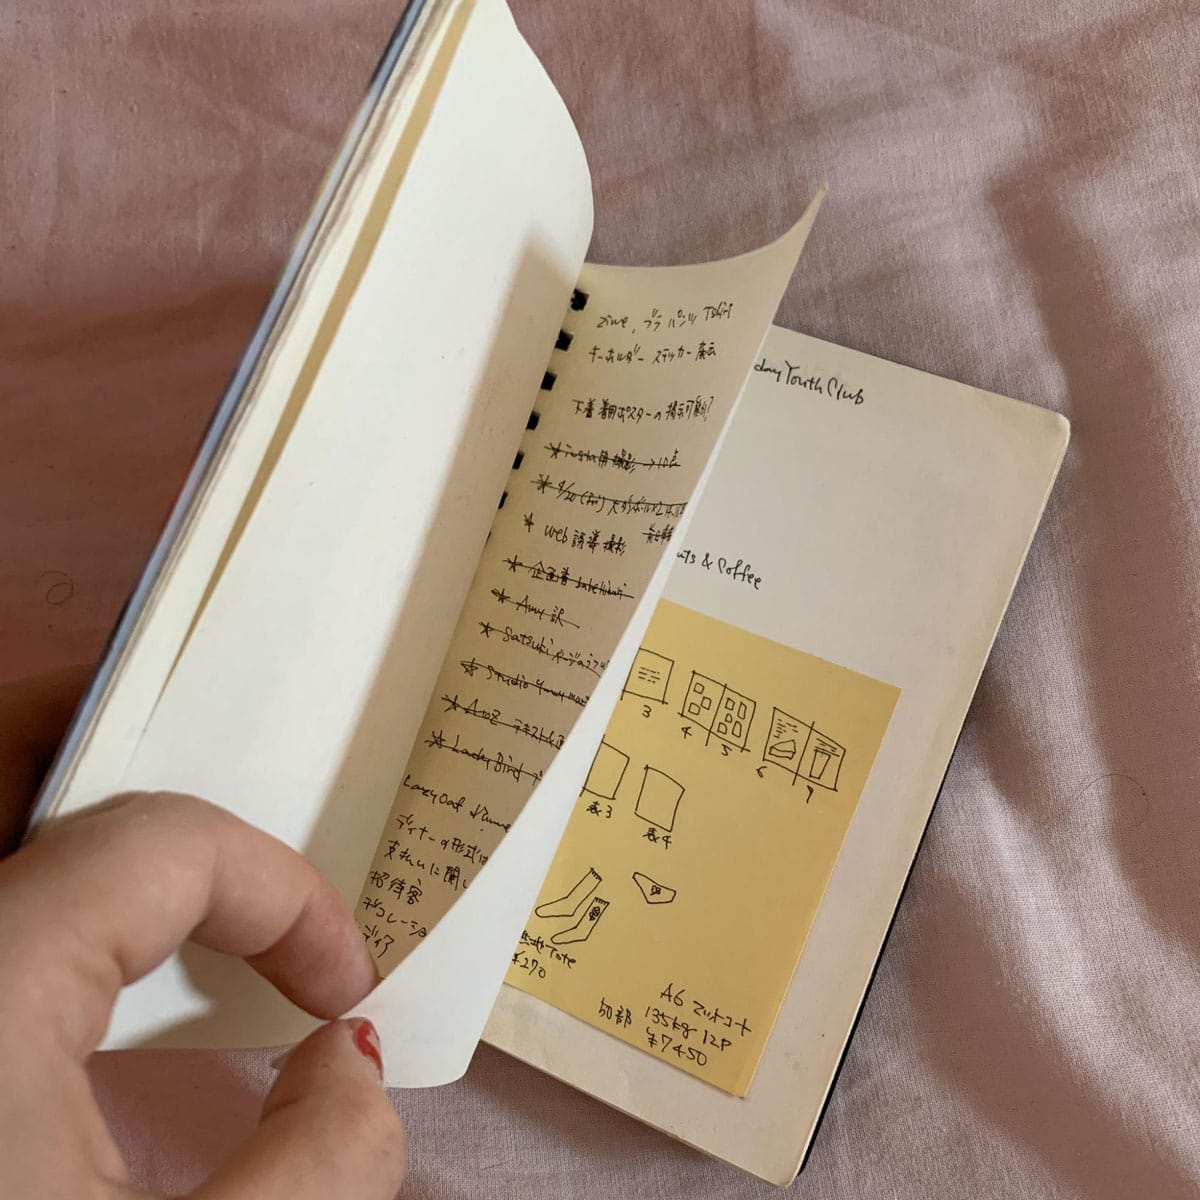 zine, ブラ パンツ Tshirt
キーホルダー ステッカー 展示
下着着用ポスターの掲示可能か?
★ insta用撮影 → 10点
★ 9/20
★ web誘導撮影
★ 企画書
★ Amy 訳
★ Satsuki
★ Studio
★ AtoZ テキスト
★ Lady Bird
Lazy Oaf
ディナーの形式は
支払いに関し
招待客
デコレーショ
ディア
day Youth Club
uts & Coffee
3
4 5
6 7
表3
表4
Tote
¥270
A6 マットコート
50部 135kg 12P
¥7450